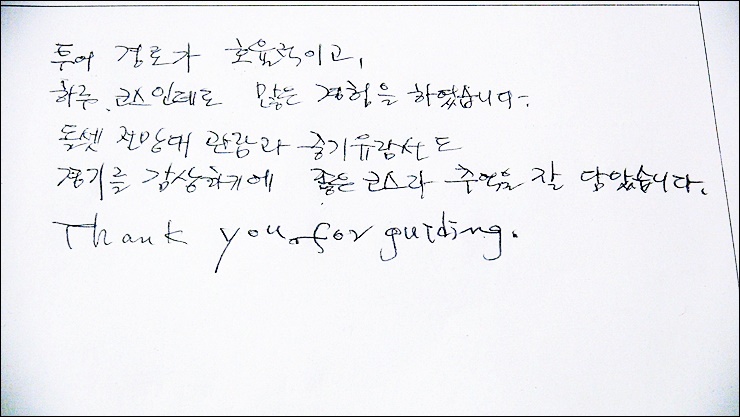 투어 경로가 효율적이고,
하루 코스인데도 많은 경험을 하였습니다.
돌셋 전망대 관람과 증기유람선도
경기를 감상하기에 좋은 코스라 추억을 잘 담았습니다.
Thank you for guiding.